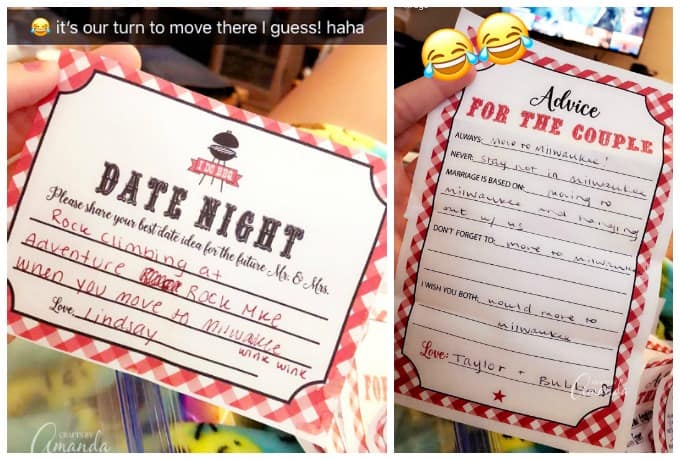 😂 it's our turn to move there I guess! haha
I DO BBQ
DATE NIGHT
Please share your best date idea for the future Mr. & Mrs.
Rock climbing at
Adventure Rock Mke
when you move to milwakee
wink wink
Love, Lindsay
CRAFTS BY
Amanda
Advice
FOR THE COUPLE
ALWAYS: move to Milwaukee!
NEVER: stay not in milwaukee
MARRIAGE IS BASED ON: moving to
milwaukee and hanging
out w/ us
DON'T FORGET TO: move to milwaukee
I WISH YOU BOTH: would move to
milwaukee
Love: Taylor + Bubba
Amanda
FOR